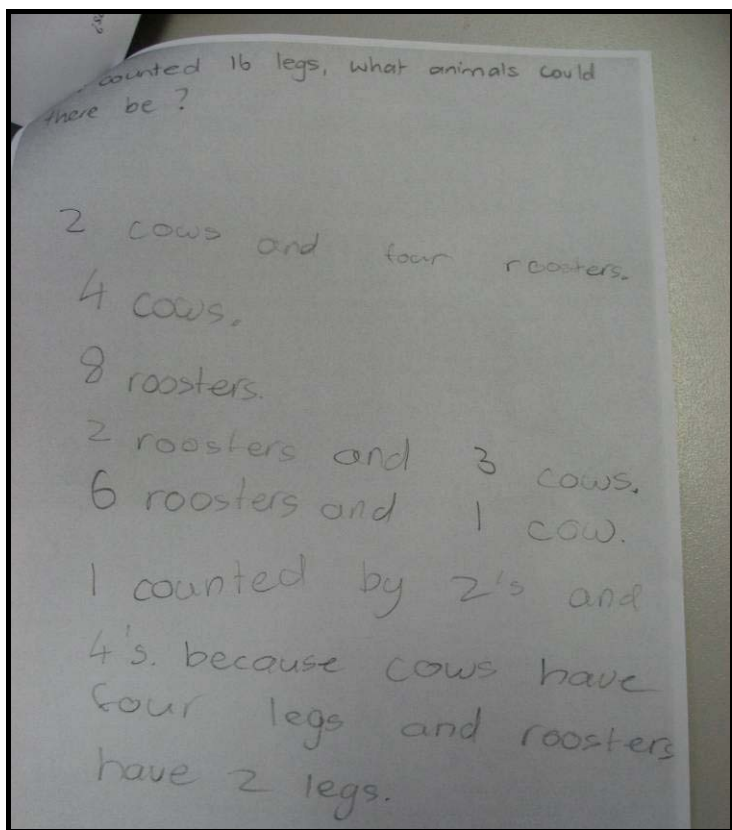 counted 16 legs, what animals could
there be ?
2 cows and four roosters.
4 cows.
8 roosters.
2 roosters and 3 cows.
6 roosters and 1 cow.
I counted by 2's and
4's. because cows have
four legs and roosters
have 2 legs.